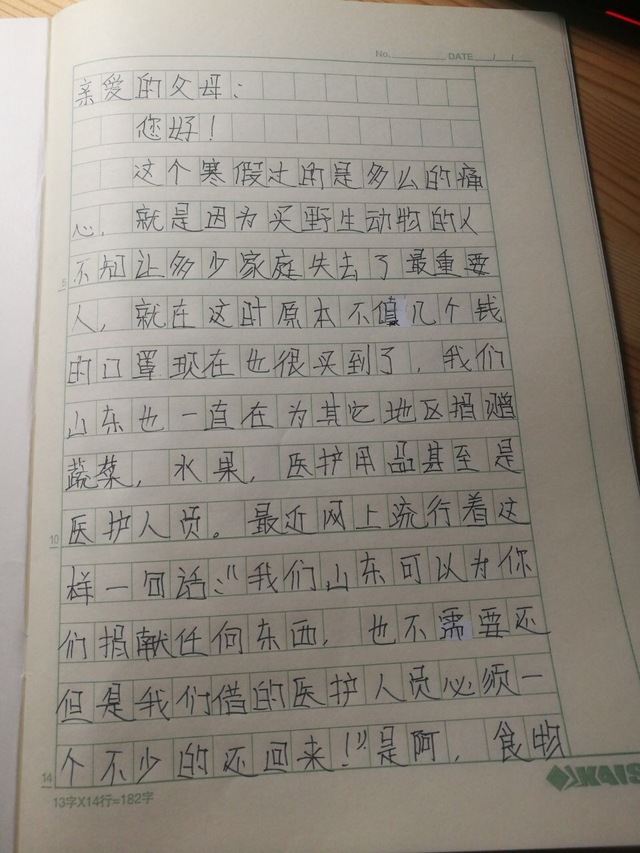 No. DATE / /
亲爱的父母:
您好!
这个寒假过的是多么的痛
心,就是因为买野生动物的人
不知让多少家庭失去了最重要
人,就在这时原本不值几个钱
的口罩现在也很买到了,我们
山东也一直在为其它地区捐赠
蔬菜,水果,医护用品甚至是
医护人员。最近网上流行着这
样一句话:"我们山东可以为你
们捐献任何东西,也不需要还
但是我们借的医护人员必须一
个不少的还回来!"是阿,食物
5
10
14
13字X14行=182字
KAIS